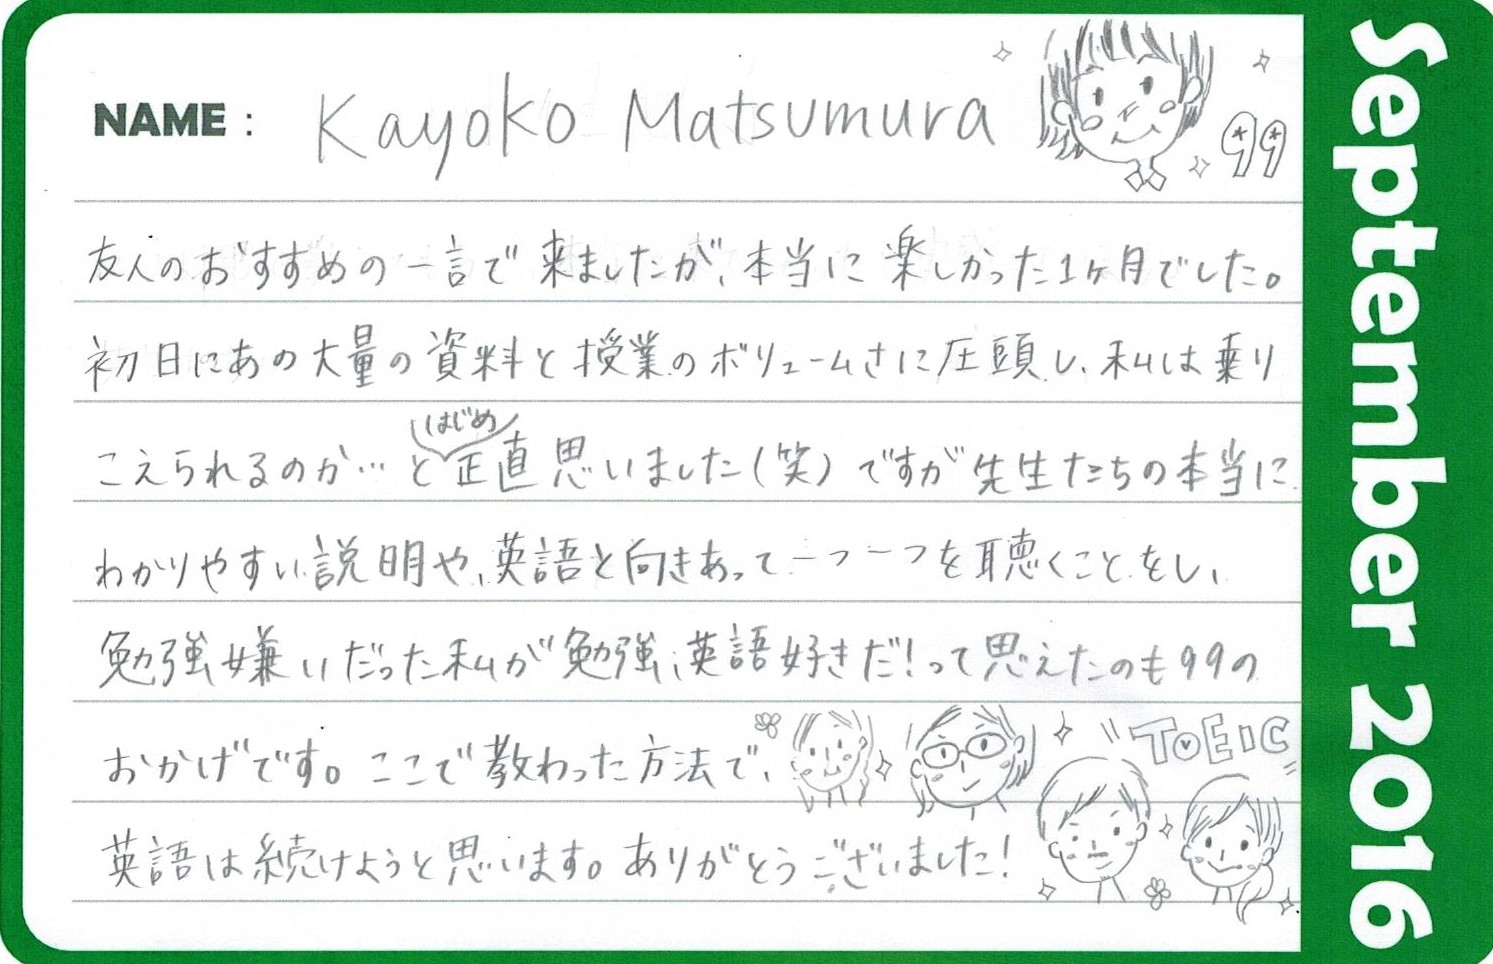 NAME : Kayoko Matsumura
99
友人のおすすめの一言で来ましたが、本当に楽しかった1ヶ月でした。
初日にあの大量の資料と授業のボリュームさに圧頭し、私は乗り
こえられるのか…とはじめ正直思いました(笑)ですが先生たちの本当に
わかりやすい説明や、英語と向きあって一つ一つを聴くことをし、
勉強嫌いだった私が勉強、英語好きだ!って思えたのも99の
おかげです。ここで教わった方法で、
TOEIC
英語は続けようと思います。ありがとうございました!
September 2016